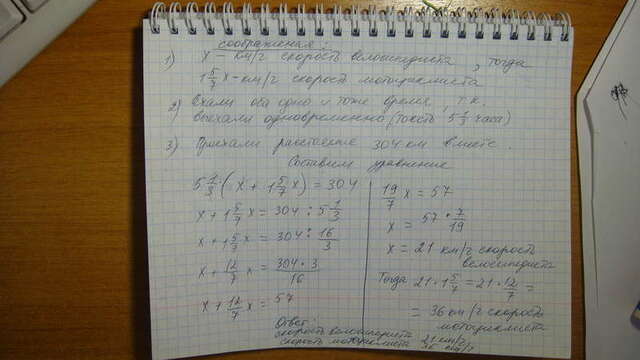 соображения:
1) x - км/г скорость велосипедиста, тогда
1 5/7 x - км/г скорость мотоциклиста
2) Ехали оба одно и тоже время, т.к.
выехали одновременно (тоесть 5 1/3 часа)
3) Приехали расстояние 304 км вместе.
Составим уравнение
5 1/3 · (x + 1 5/7 x) = 304
x + 1 5/7 x = 304 : 5 1/3
x + 1 5/7 x = 304 : 16/3
x + 12/7 x = 304 · 3/16
x + 12/7 x = 57
19/7 x = 57
x = 57 · 7/19
x = 21 км/г скорость
велосипедиста
Тогда 21 · 1 5/7 = 21 · 12/7 =
= 36 км/г скорость
мотоциклиста
Ответ:
скорость велосипедиста 21 км/г
скорость мотоциклиста 36 км/г